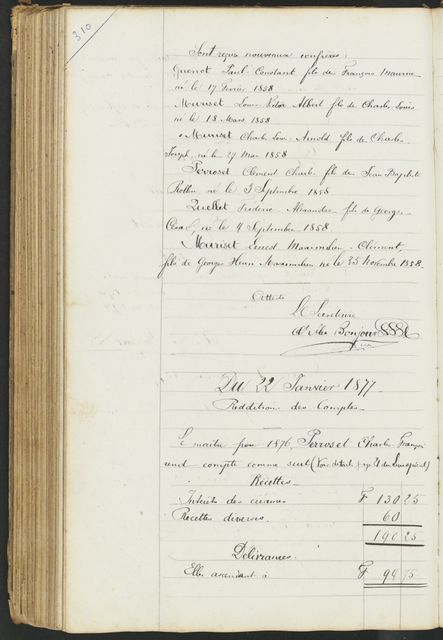 310
Sont reçus nouveaux confrères:
Quenot Paul Constant fils de François Maurice
né le 17 Février 1858
Muriset Louis Victor Albert fils de Charles Louis
né le 18 Mars 1858
Muriset Charles Louis Arnold fils de Charles
Joseph, né le 27 Mai 1858
Perroset Clément Charles fils de Jean Baptiste
Rollin né le 3 Septembre 1858
Quellet Frédéric Alexandre fils de Georges
César, né le 4 Septembre 1858
Muriset Ernest Maximilien Clément
fils de Georges Henri Maximilien né le 25 Novembre 1858.
Atteste
Le Secrétaire
Alex Bonjour
Du 22 Janvier 1877
Reddition des Comptes
Le maître pour 1876, Perroset Charles François
rend compte comme suit (Voir détails
Recettes
Intérêts des créances F 130 25
Recettes diverses 60
190 25
Délivrances
Elles ascendent à F 94 75